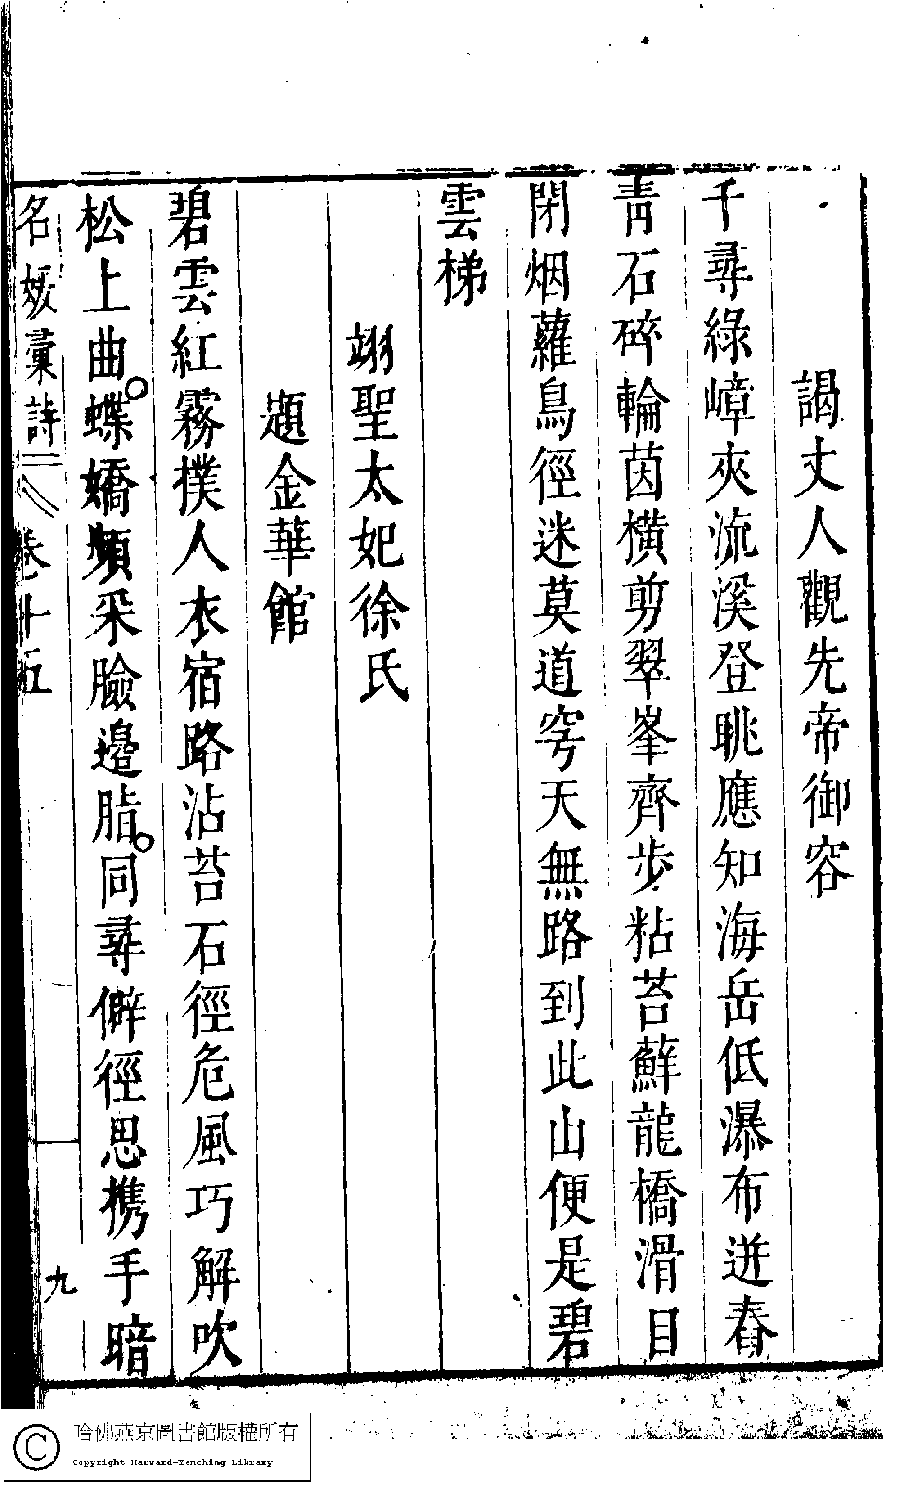 謁丈人觀先帝御容
千尋綠嶂夾流溪登眺應知海岳低瀑布迸舂
青石碎輪茵橫剪翠峯齊步粘苔蘚龍橋滑目
閉烟蘿鳥徑迷莫道穹天無路到此山便是碧
雲梯
翊聖太妃徐氏
題金華館
碧雲紅霧撲人衣宿路沾苔石徑危風巧解吹
松上曲蝶嬌頻采臉邊脂同尋僻徑思携手暗
名媛彙詩 卷十五
九
哈佛燕京圖書館版權所有
Copyright Harvard-Yenching Library